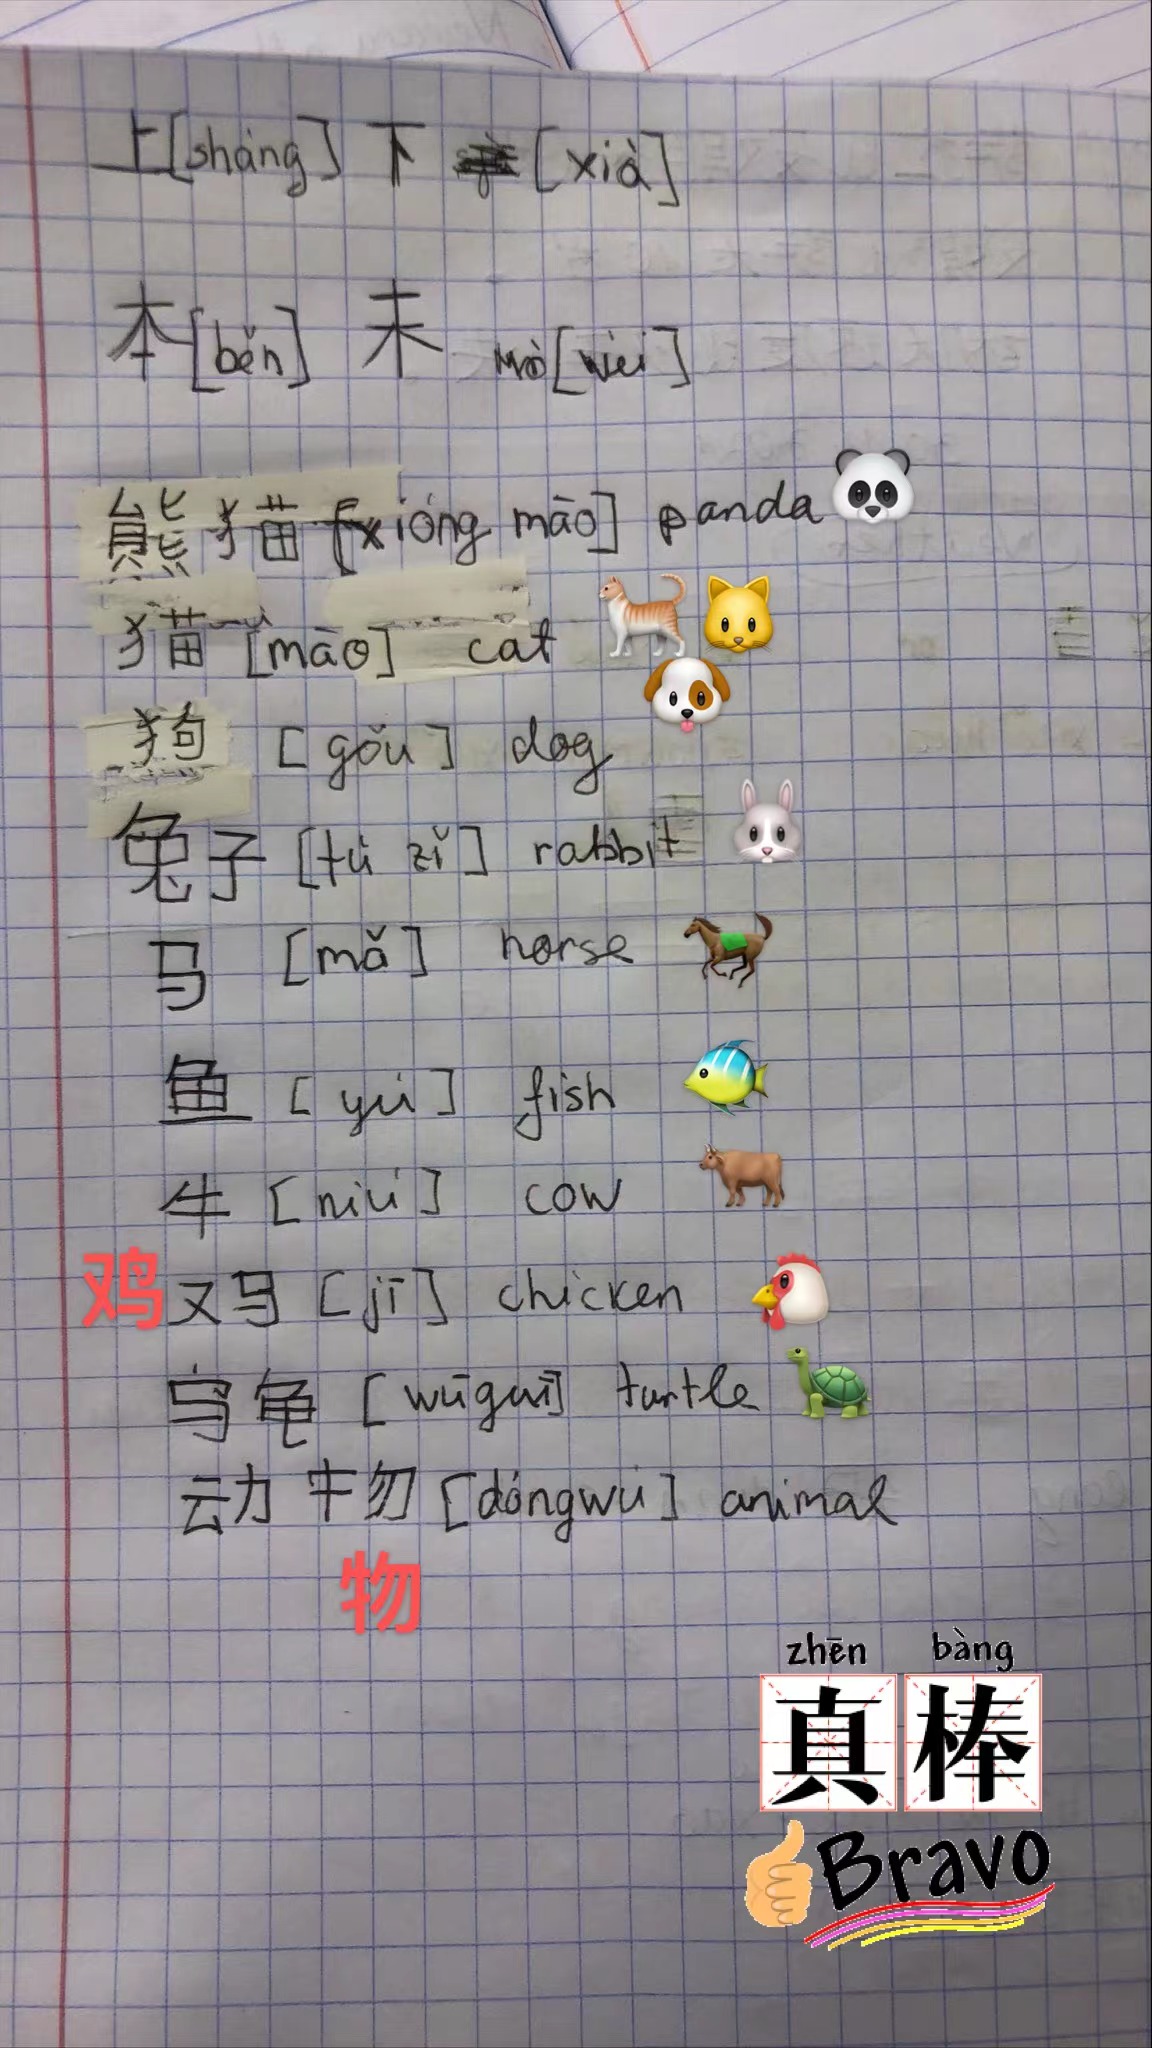 上[sháng] 下 [xià]
本[běn] 末 mò[wèi]
熊猫 [xióng māo] panda
猫 [māo] cat
狗 [gǒu] dog
兔子 [tù zǐ] rabbit
马 [mǎ] horse
鱼 [yú] fish
牛 [niú] cow
鸡 又鸟 [jī] chicken
乌龟 [wūguī] turtle
动 牜勿 [dóngwù] animal
物
zhēn bàng
真棒
Bravo